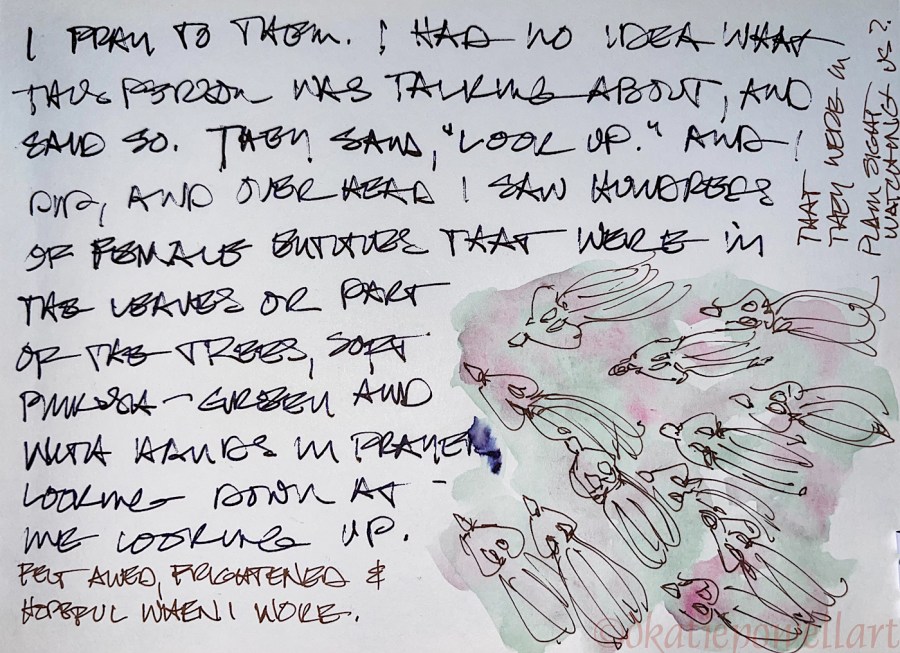 I PRAY TO THEM. I HAD NO IDEA WHAT
THIS PERSON WAS TALKING ABOUT, AND
SAID SO. THEY SAID, "LOOK UP." AND I
DID, AND OVERHEAD I SAW HUNDREDS
OF FEMALE ENTITIES THAT WERE IN
THE LEAVES OR PART
OF THE TREES, SOFT
PINKISH-GREEN AND
WITH HANDS IN PRAYER
LOOKING DOWN AT
ME LOOKING UP.
FELT AWED, FRIGHTENED &
HOPEFUL WHEN I WOKE.
THAT
THEY WERE IN
PLAIN SIGHT
WATCHING US?
©okatiepowellart